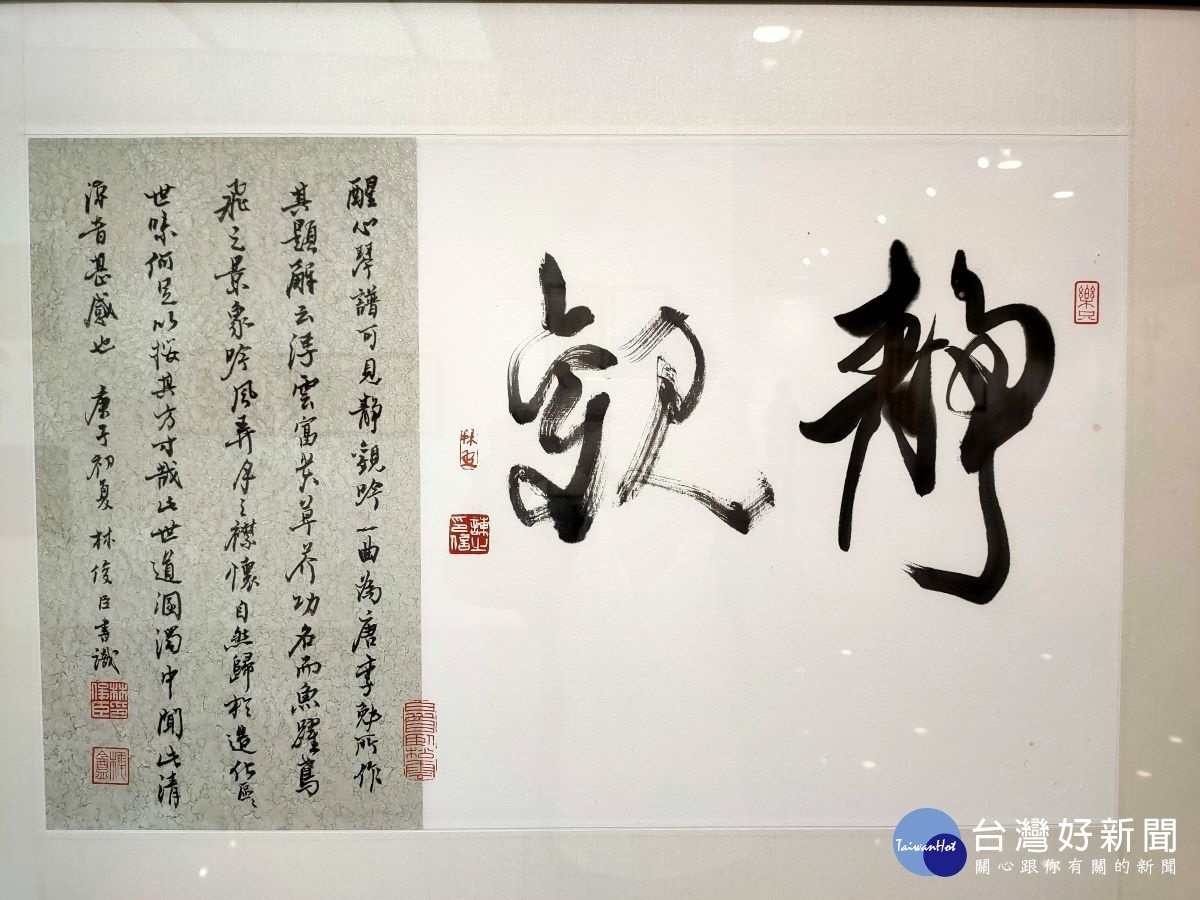 靜觀
樂只
醒心琴譜可見靜觀吟一曲為唐李勉所作
其題解云浮雲富貴草芥功名而魚躍鳶
飛之景象吟風弄月之襟懷自然歸於造化區〻
世味何足以攖其方寸哉此世道溷濁中聞此清
音甚感也 庚子初夏 林俊臣書識
TaiwanHot
台灣好新聞
關心跟你有關的新聞